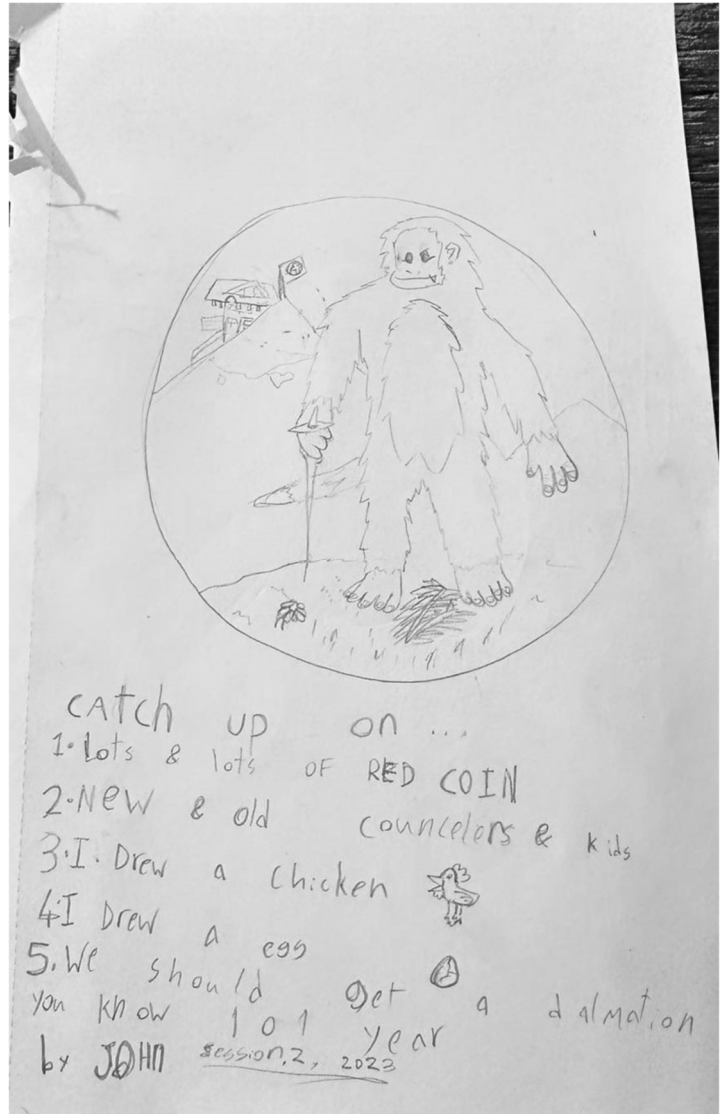 CATCH UP ON ...
1. Lots & lots OF RED COIN
2. NEW & old councelers & kids
3. I. Drew a chicken
4. I Drew a egg
5. We should get a dalmation
you know 101 year
by JOHN session, 2, 2023